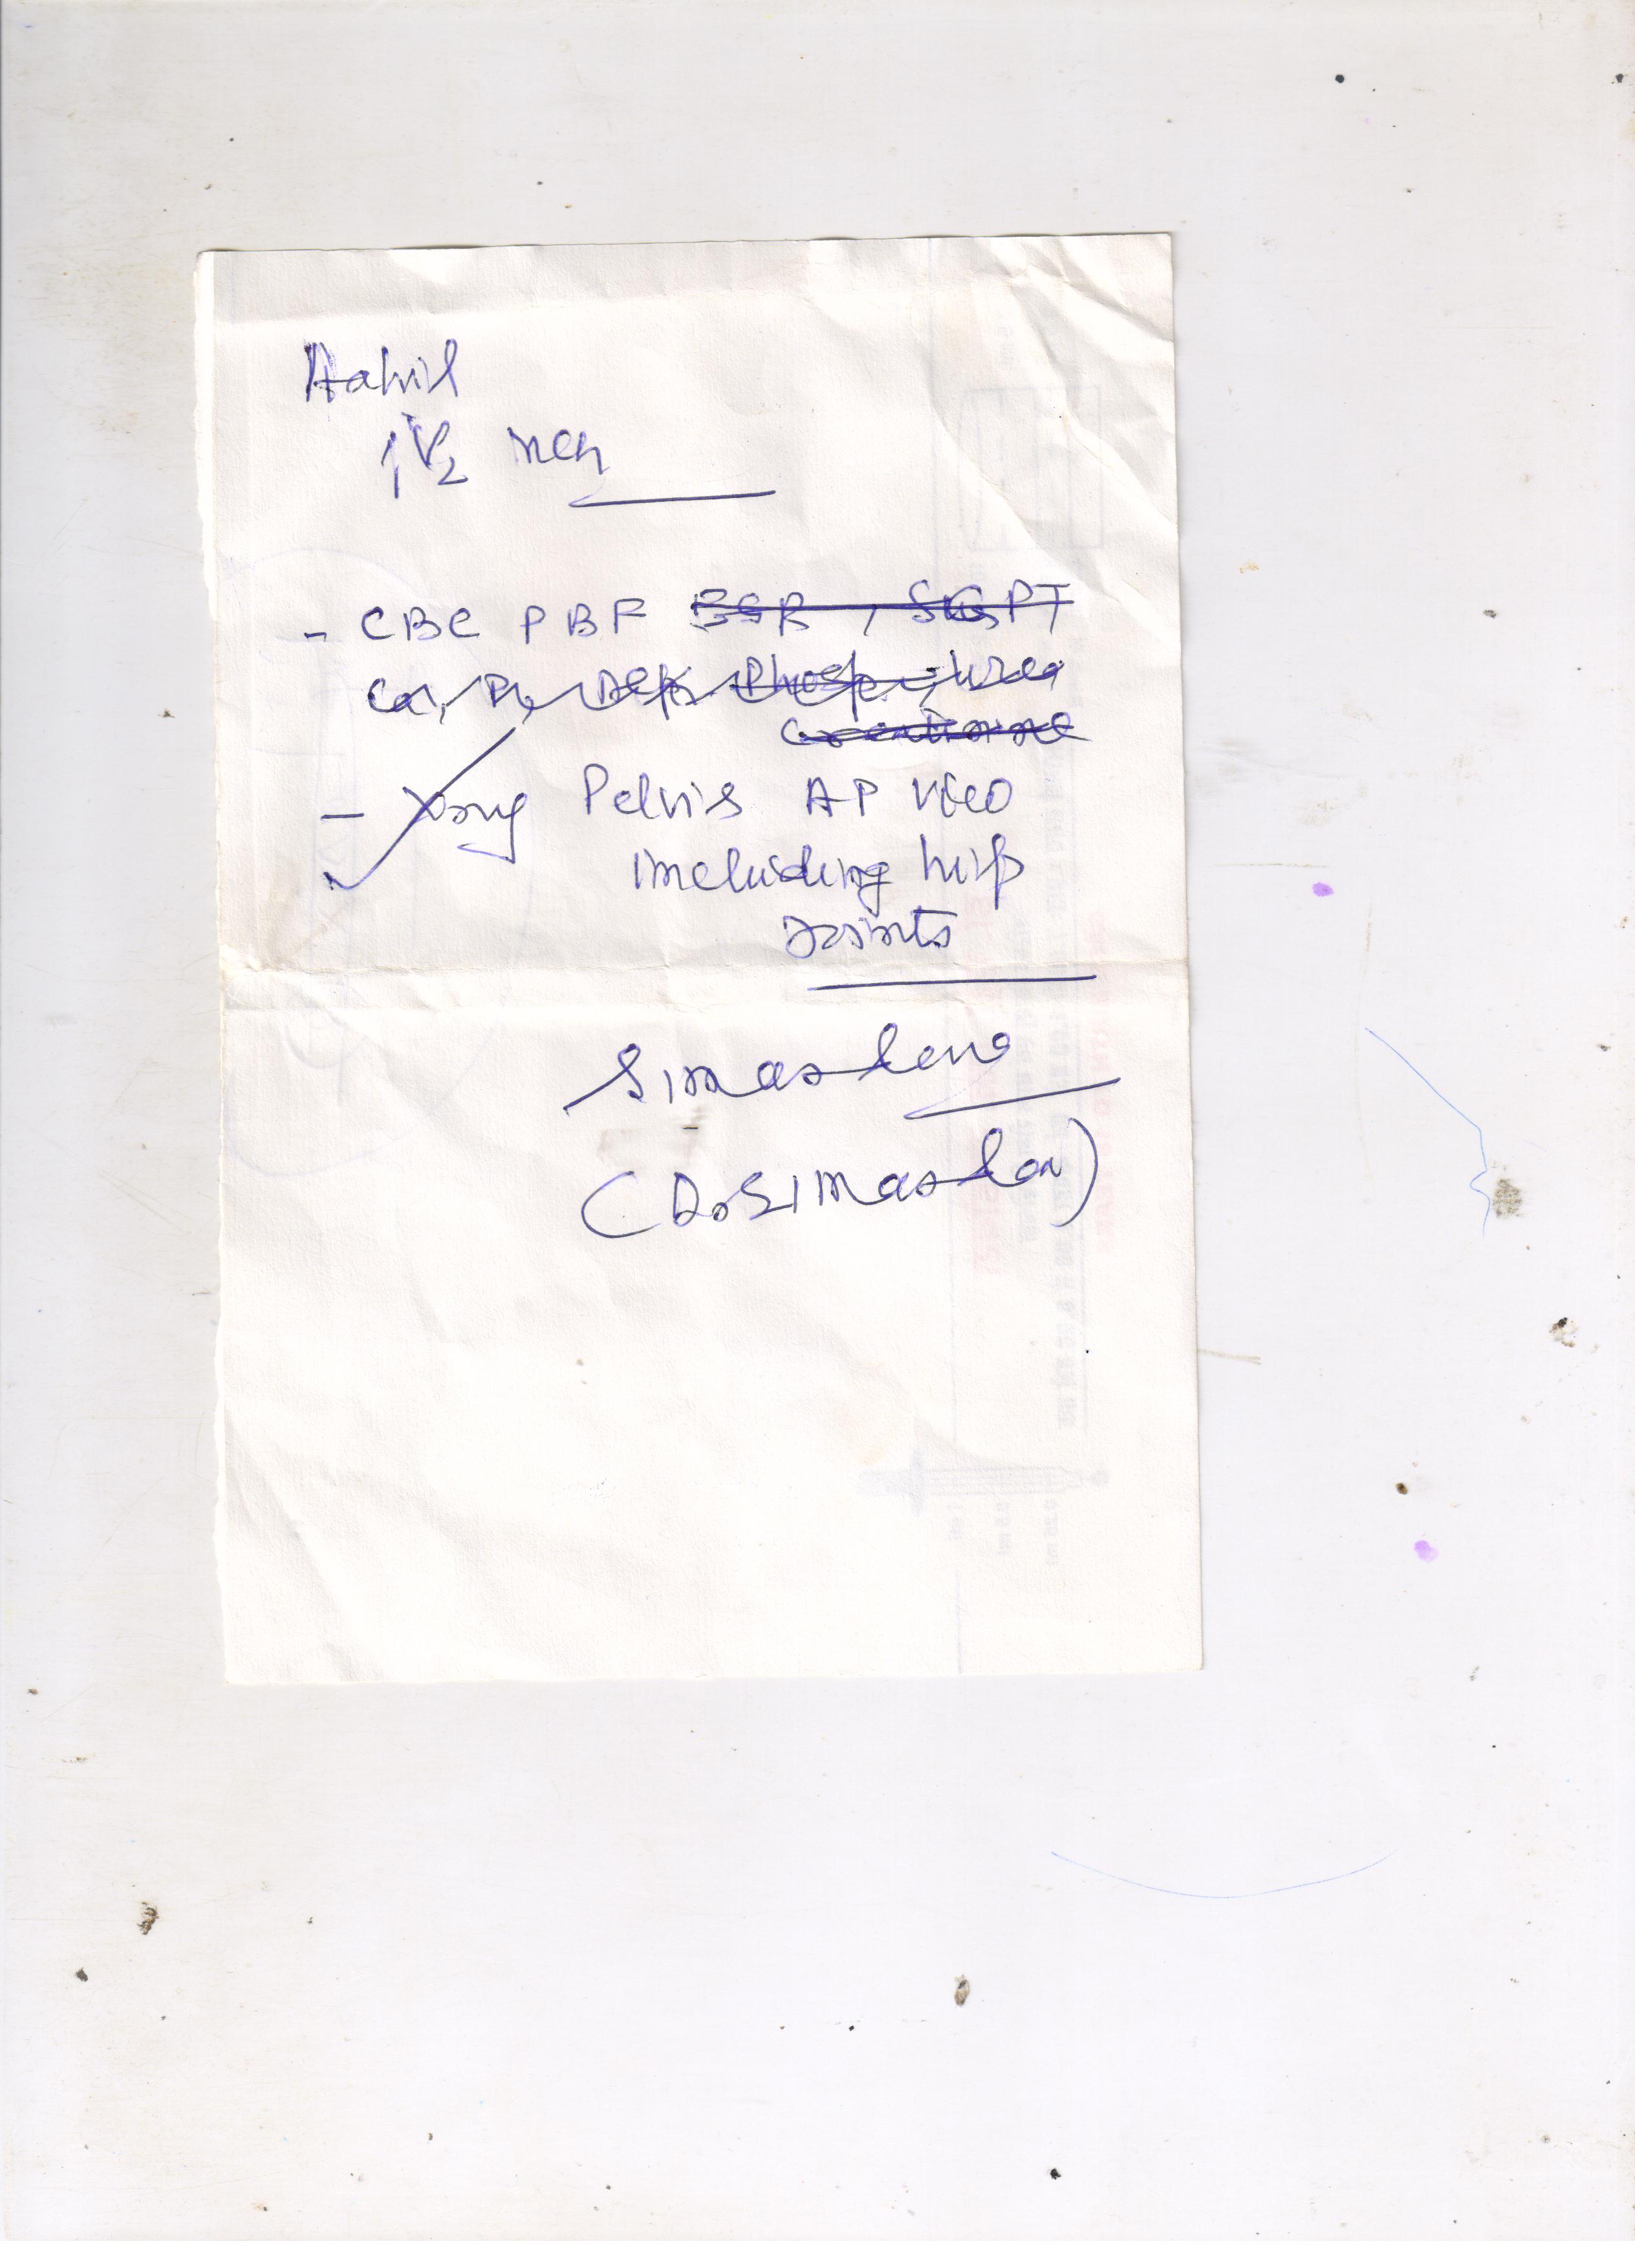 Aahil
1½ MCh
- CBC PBF ESR, SGPT
Ca, P, Alk Phosp, Urea
Creatinine
- Xray Pelvis AP View
including hip
Joints
Simaslene
(Dr Simaslen)